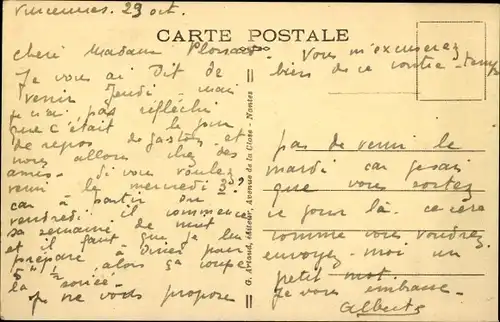 Vincennes. 23 oct.
CARTE POSTALE
Cheri Madame
Je vous ai dit de
venir Jeudi - mai
je n'ai pas réfléchi
que c'était le jour
de repos de gaston et
nous allons chez des
amis. Si vous voulez
veni le mercredi
car à partir du
vendredi il commence
sa semaine de nuit
et il faut que je lui
prépare à diner pour
5 h 1/2 alors ça coupe
la soirée -
Je ne vous propose
G. Artaud, éditeur, Avenue de la Close - Nantes
Vous m'excuserez
bien de ce contre-temps
pas de venir le
mardi car je sais
que vous sortez
ce jour là.
comme vous voudrez
envoyez-moi un
petit mot.
Je vous embrasse